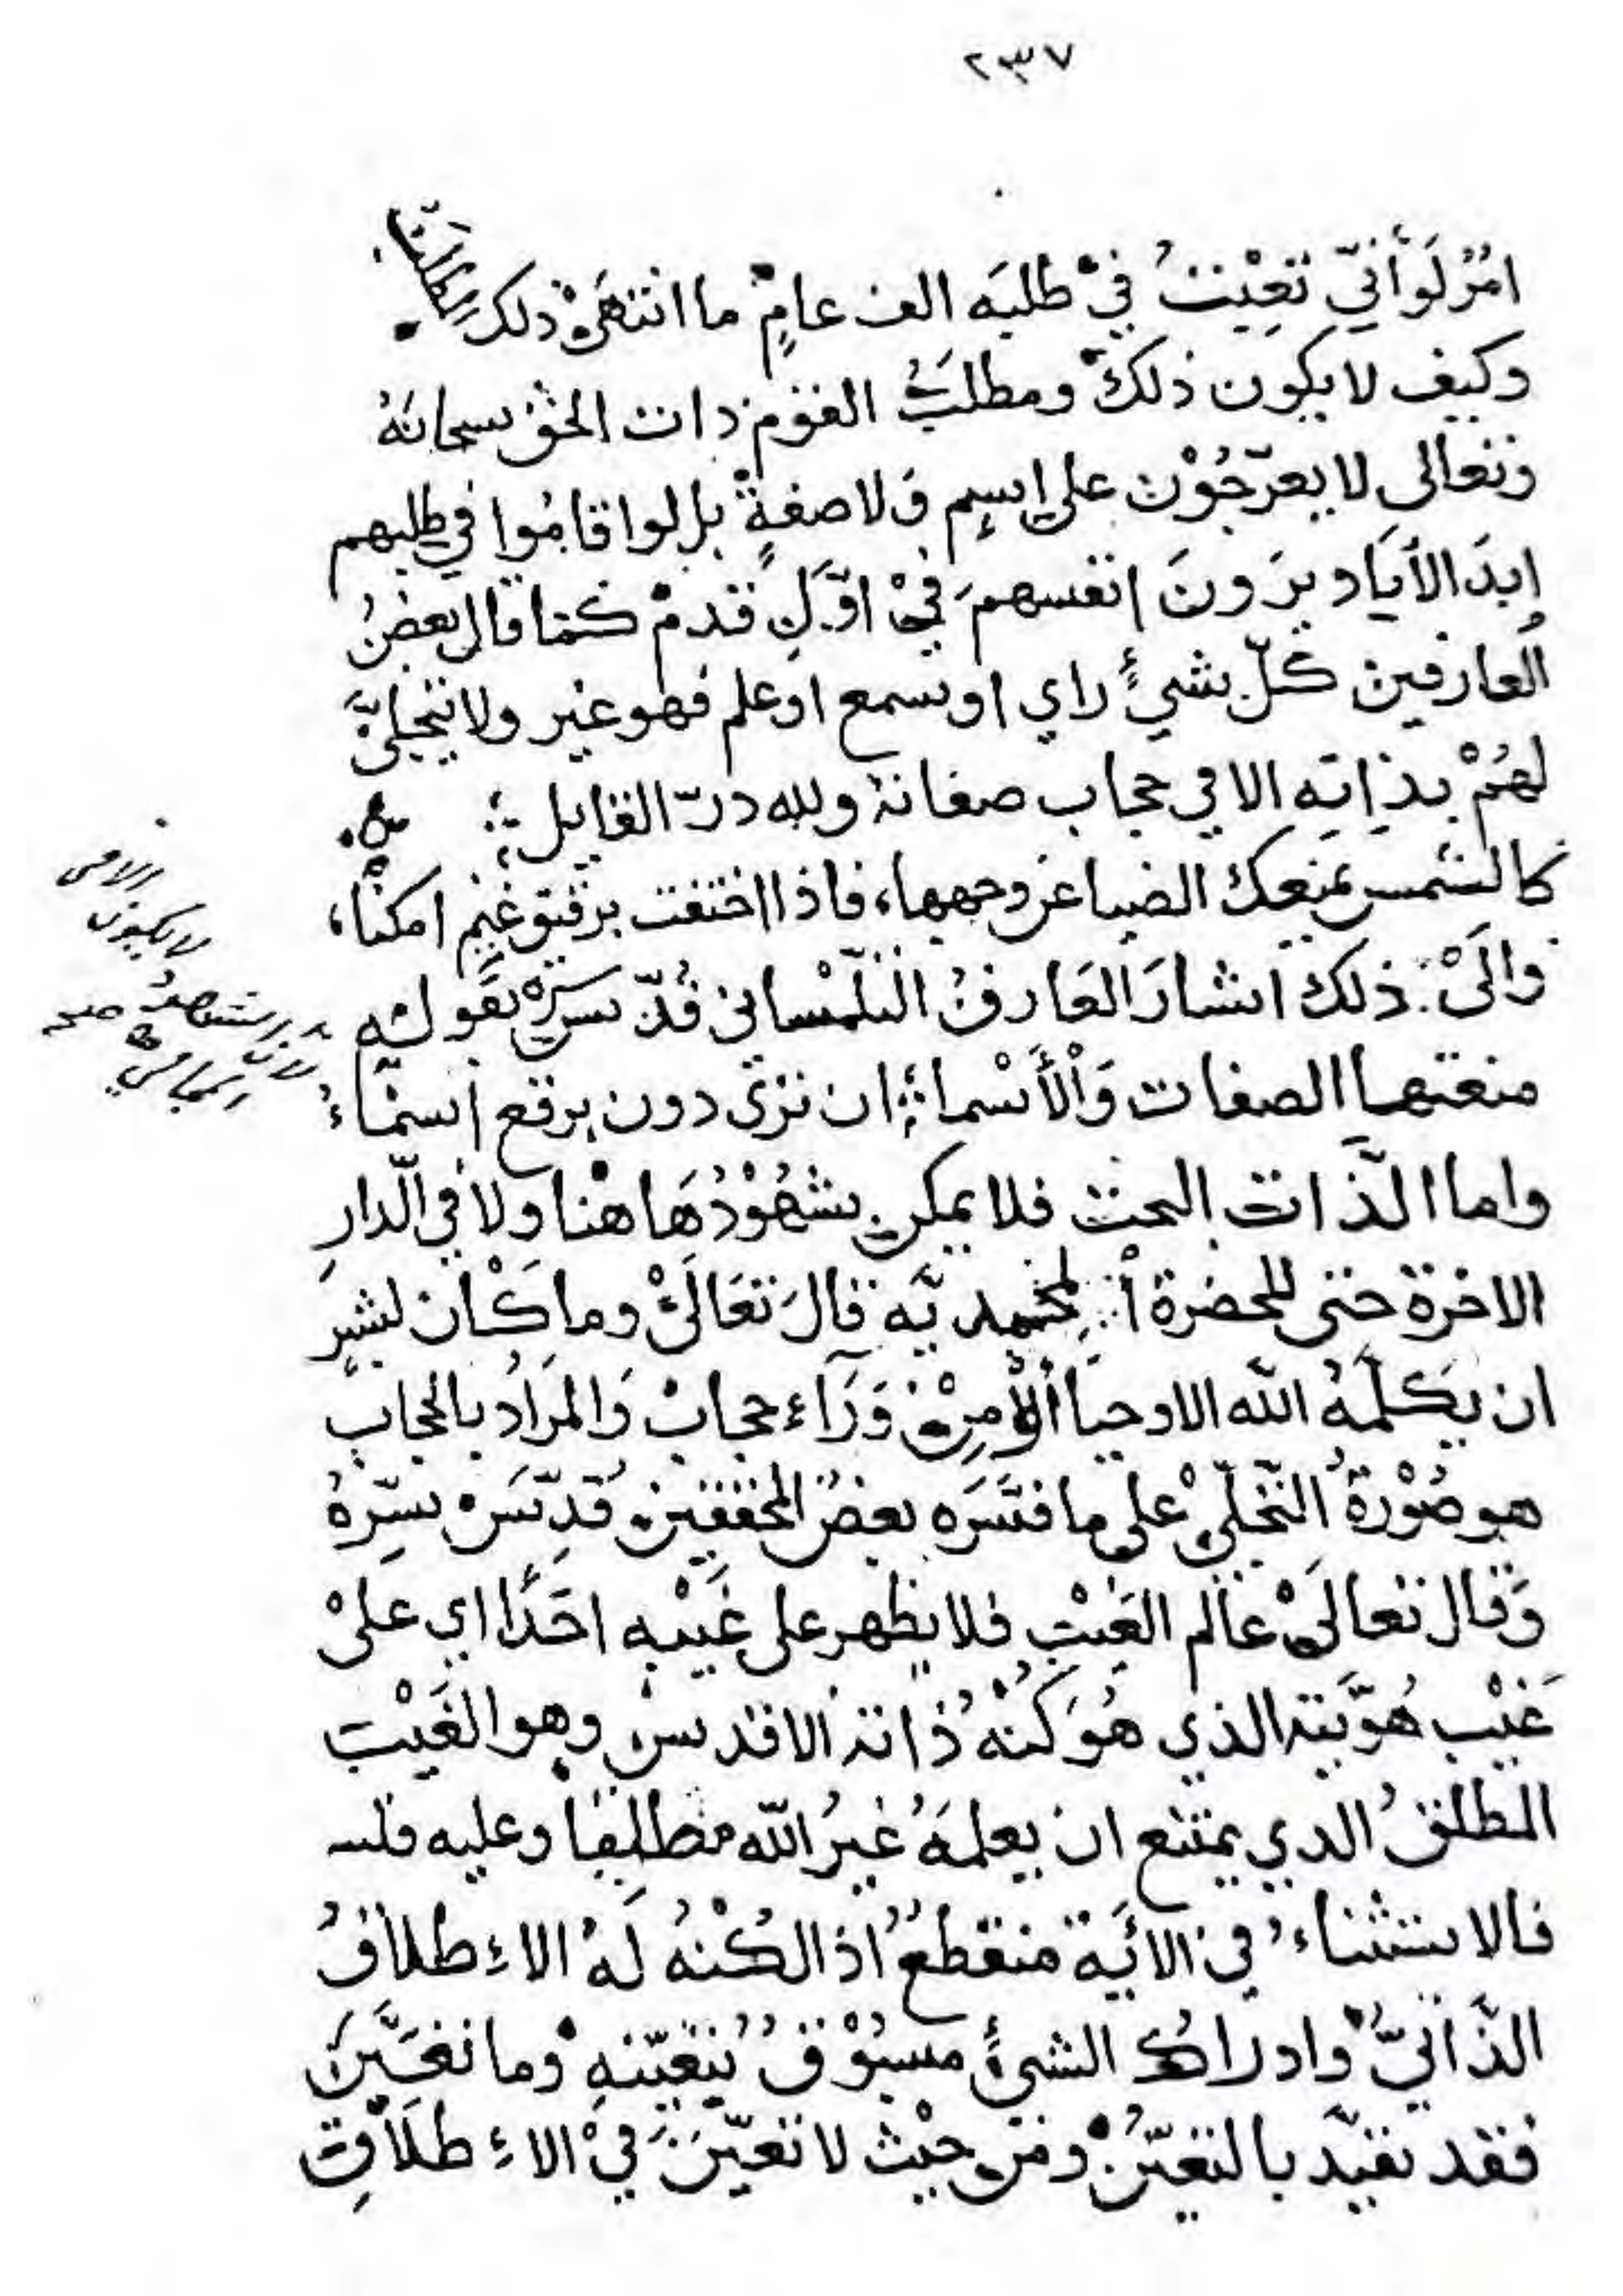 ٢٣٧
امرُ لَو أنيّ تعِبْتُ فيْ طلبَه الف عامٍ ما انتهَىْ ذلك
وكيف لا يكون ذلك ومطلبُ القوْم ذات الحق سبحانهُ
وتعالى لا يعرّجُوْن على إسمٍ وَلا صفةٍ بل لو اقامُوا في طلبهم
ابدَ الأبَاد يرَونَ انفسهم فيْ اوّلِ قدم كما قال بعضُ
العارفين كلّ شيءٍ راي او سمع او علم فهو غير ولا يتجلىّ
لهُمْ بذاتِهِ الا في حجاب صفاته ولله درّ القايل
كالشمس يمنعك الضيا عن وجهها، فاذا اختفت برقيق غيم امكنا،
والَىْ ذلك اشارَ العَارفُ التلّمْساني قُدّ سرّهْ بقوله
منعتها الصفات وَالْأَسْماءُ ان ترَى دون برقع اسمَاءُ
واما الّذات البحت فلا يمكن شهُوْدُهَا هْنا ولا في الّدارِ
الاخرة حتى للحضرة المحمديّه قالَ تعَالَىْ وما كَان لبشرٍ
ان يكلّمهُ الله الا وحيا أو مِنْ وَرَآء حجابْ وَالمرَادُ بالحجابِ
هو صُوْرةُ التّجلّيْ على ما فسَّرَه بعضُ المحققين قدِّسَ سِّرهُ
وَقال تعالَىْ عَالم الغَيْبِ فلا يظهر على غَيْبِهِ احَدًا اي علىْ
غَيْب هُوَّيته الذي هُوَ كنْهُ ذُاته الاقدس وهو الغَيْبِ
المطلقُ الدي يمتنع ان يعلمَهُ غيرُ اللّه مطلِقاً وعليه فلـه
فالاستثناءُ في الأيَة منقطعُ اذ الكُنْهُ لَهُ الاءِطلاقُ
الذّاتيُّ وادراكُ الشيءٍ مسبُوْقُ بتَعيّنهِ وما تعَيَّنَ
فقد تقيّد بالتعيّن ومن حيْث لا تعيّنَ فيْ الاءِطلَاقِ